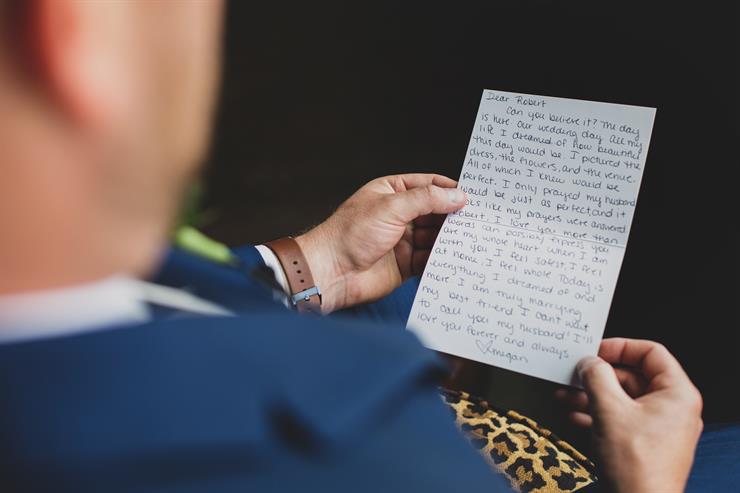 Dear Robert
Can you believe it? The day
is here. Our wedding day. All my
life I dreamed of how beautiful
this day would be. I pictured the
dress, the flowers, and the venue.
All of which I knew would be
perfect. I only prayed my husband
would be just as perfect, and it
like my prayers were answered
Robert, I love you more than
words can possibly express you
are my whole heart when I am
with you I feel safest, I feel
at home, I feel whole Today is
everything I dreamed of and
more. I am truly marrying
my best friend I can't wait
to call you my husband! I'll
love you forever and always
♡Megan